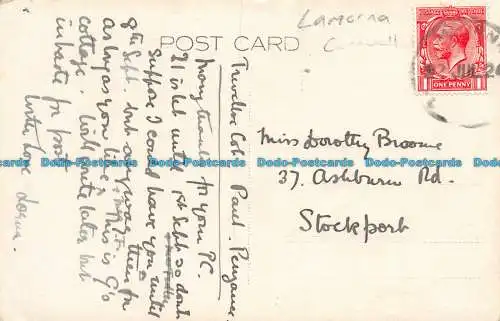 Lamorna
Cornwall
POST CARD
POSTAGE
REVENUE
ONE PENNY
JUL
Trevelloe Cot. Paul. Penzance
Many thanks for your P.C.
21 is let until 1st Sept so don't
suppose I could have you until
8th Sept. but anyway then for
as long as you like. This is G's
cottage. Will write later but
in haste for post
Love
Miss Dorothy Broome
37. Ashburn Rd.
Stockport
Dodo-Postcards Dodo-Postcards Dodo-Postcards Dodo-Postcards